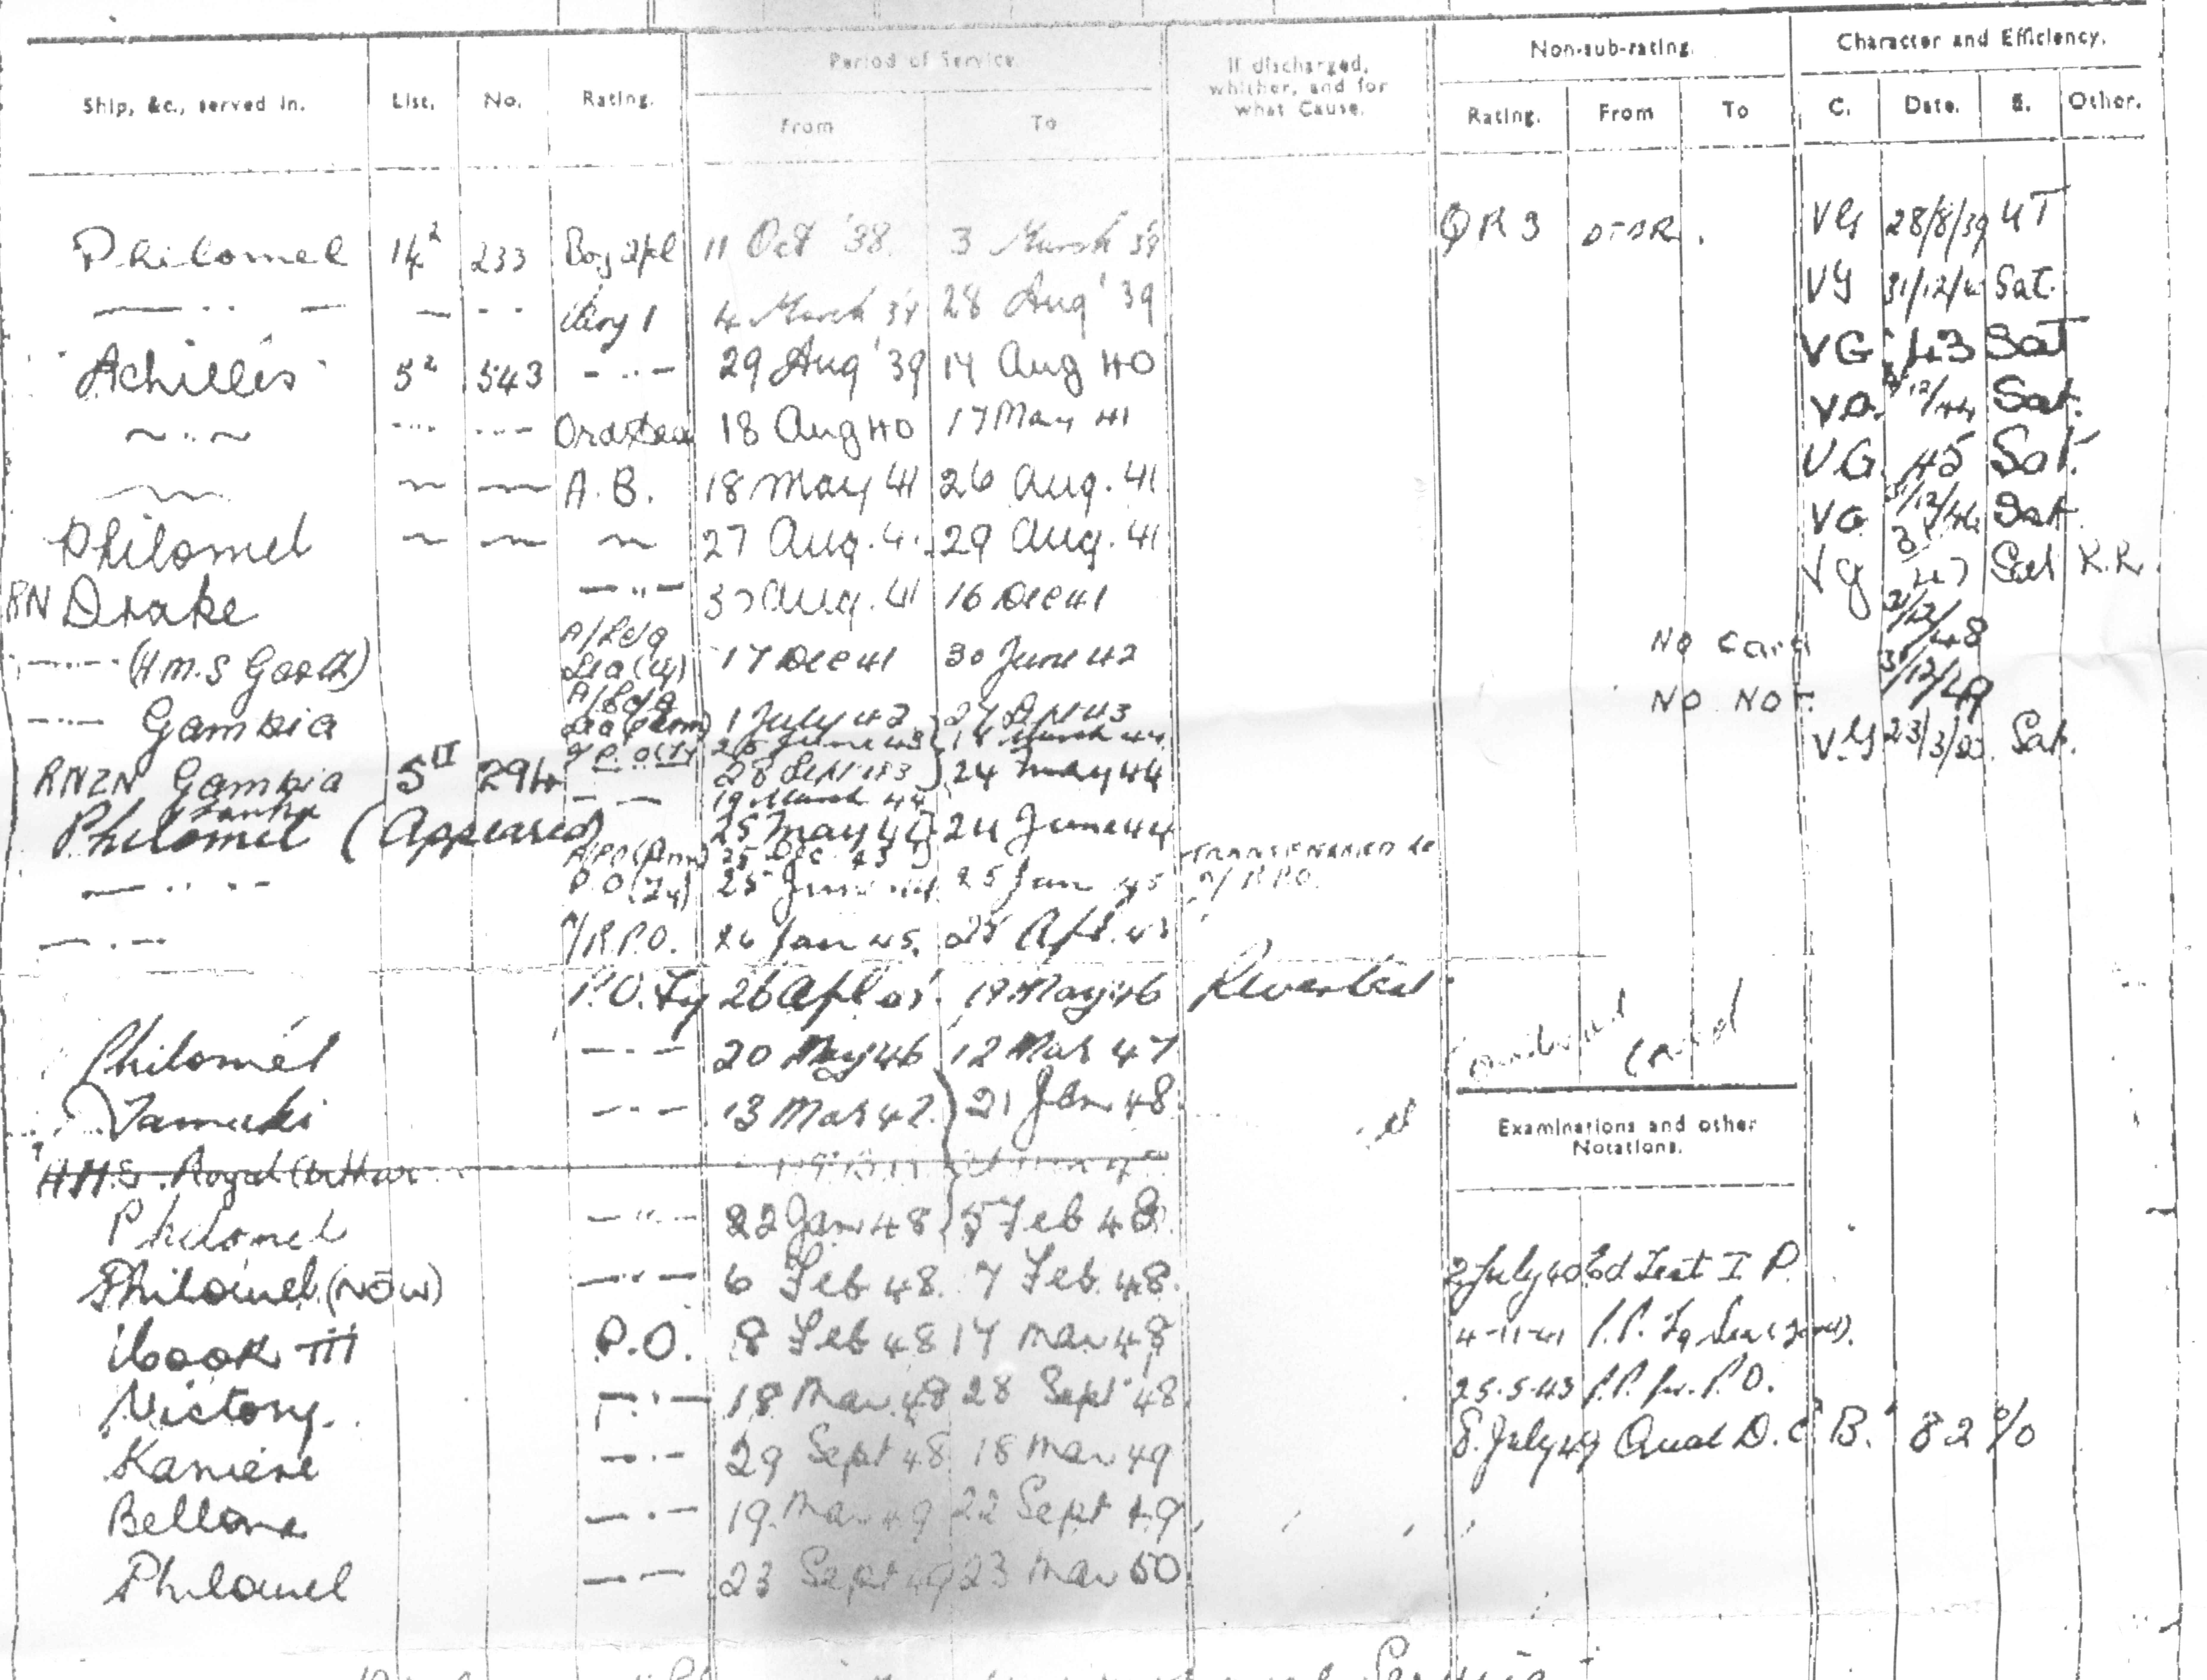 Ship, &c., served in. List. No. Rating. Period of Service. From To If discharged, whither, and for what Cause. Non-sub-rating. Rating. From To Character and Efficiency. C. Date. E. Other.
Philomel 14² 233 Boy 2 cl 11 Oct '38. 3 March 39 QR3 VG 28/8/39 UT
— ·· — — ·· Boy 1 4 March 39 28 Aug '39 VG 31/12/ Sat.
Achilles 5² 543 — ·· — 29 Aug '39 17 Aug 40 VG 43 Sat
~ ·· ~ Ord Sea 18 Aug 40 17 May 41 VG. 12/44 Sat.
A.B. 18 May 41 26 Aug. 41 VG. 45 Sat.
Philomel 27 Aug. 4 29 Aug. 41 VG 31/12/46 Sat.
RN Drake — ·· — Aug. 41 16 Dec 41 VG 47 Sat R.R.
(H.M.S Goath) A/Ldg Sea (ty) 17 Dec 41 30 June 42 No Card 31/12/48
— ·· — Gambia A/Ldg Sea (Perm) 1 July 42 27 Sept 43 No Not. 31/12/49
26 June 43 18 March 44 V.G 23/3/50. Sat.
RNZN Gambia 5 II 294 28 Sept 43 24 May 44
19 March 44
Philomel (Appeared) 25 May 44 24 June 44
A/PO (Perm) 25 Dec 43
— ·· — P.O (Ty) 25 June 44 25 Jan 45 Transferred to A/R.P.O.
— · — A/R.P.O. 26 Jan 45. 25 Apl. 45
P.O. Ty 26 Apl 45 19 May 46 Reverted
Philomel — · — 20 May 46 12 Mar 47
Tamaki — · — 13 Mar 47. 21 Jan 48
Examinations and other Notations.
H.M.S. Royal Arthur
Philomel — ·· — 22 Jan 48 5 Feb 48
Philomel (NOW) — ·· — 6 Feb 48. 7 Feb. 48. 2 July 40 Ed Test I P.
Cook III P.O. 8 Feb 48 17 Mar 48 4-11-41 P.P. Lg Sea
Victory — · — 18 Mar 48 28 Sept 48 25.5.43 P.P. for P.O.
Kaniere — · — 29 Sept 48 18 Mar 49 8. July 49 Qual D.C.B. 82%
Bellona — · — 19. Mar 49 22 Sept 49
Philomel — · — 23 Sept 49 23 Mar 50
Service